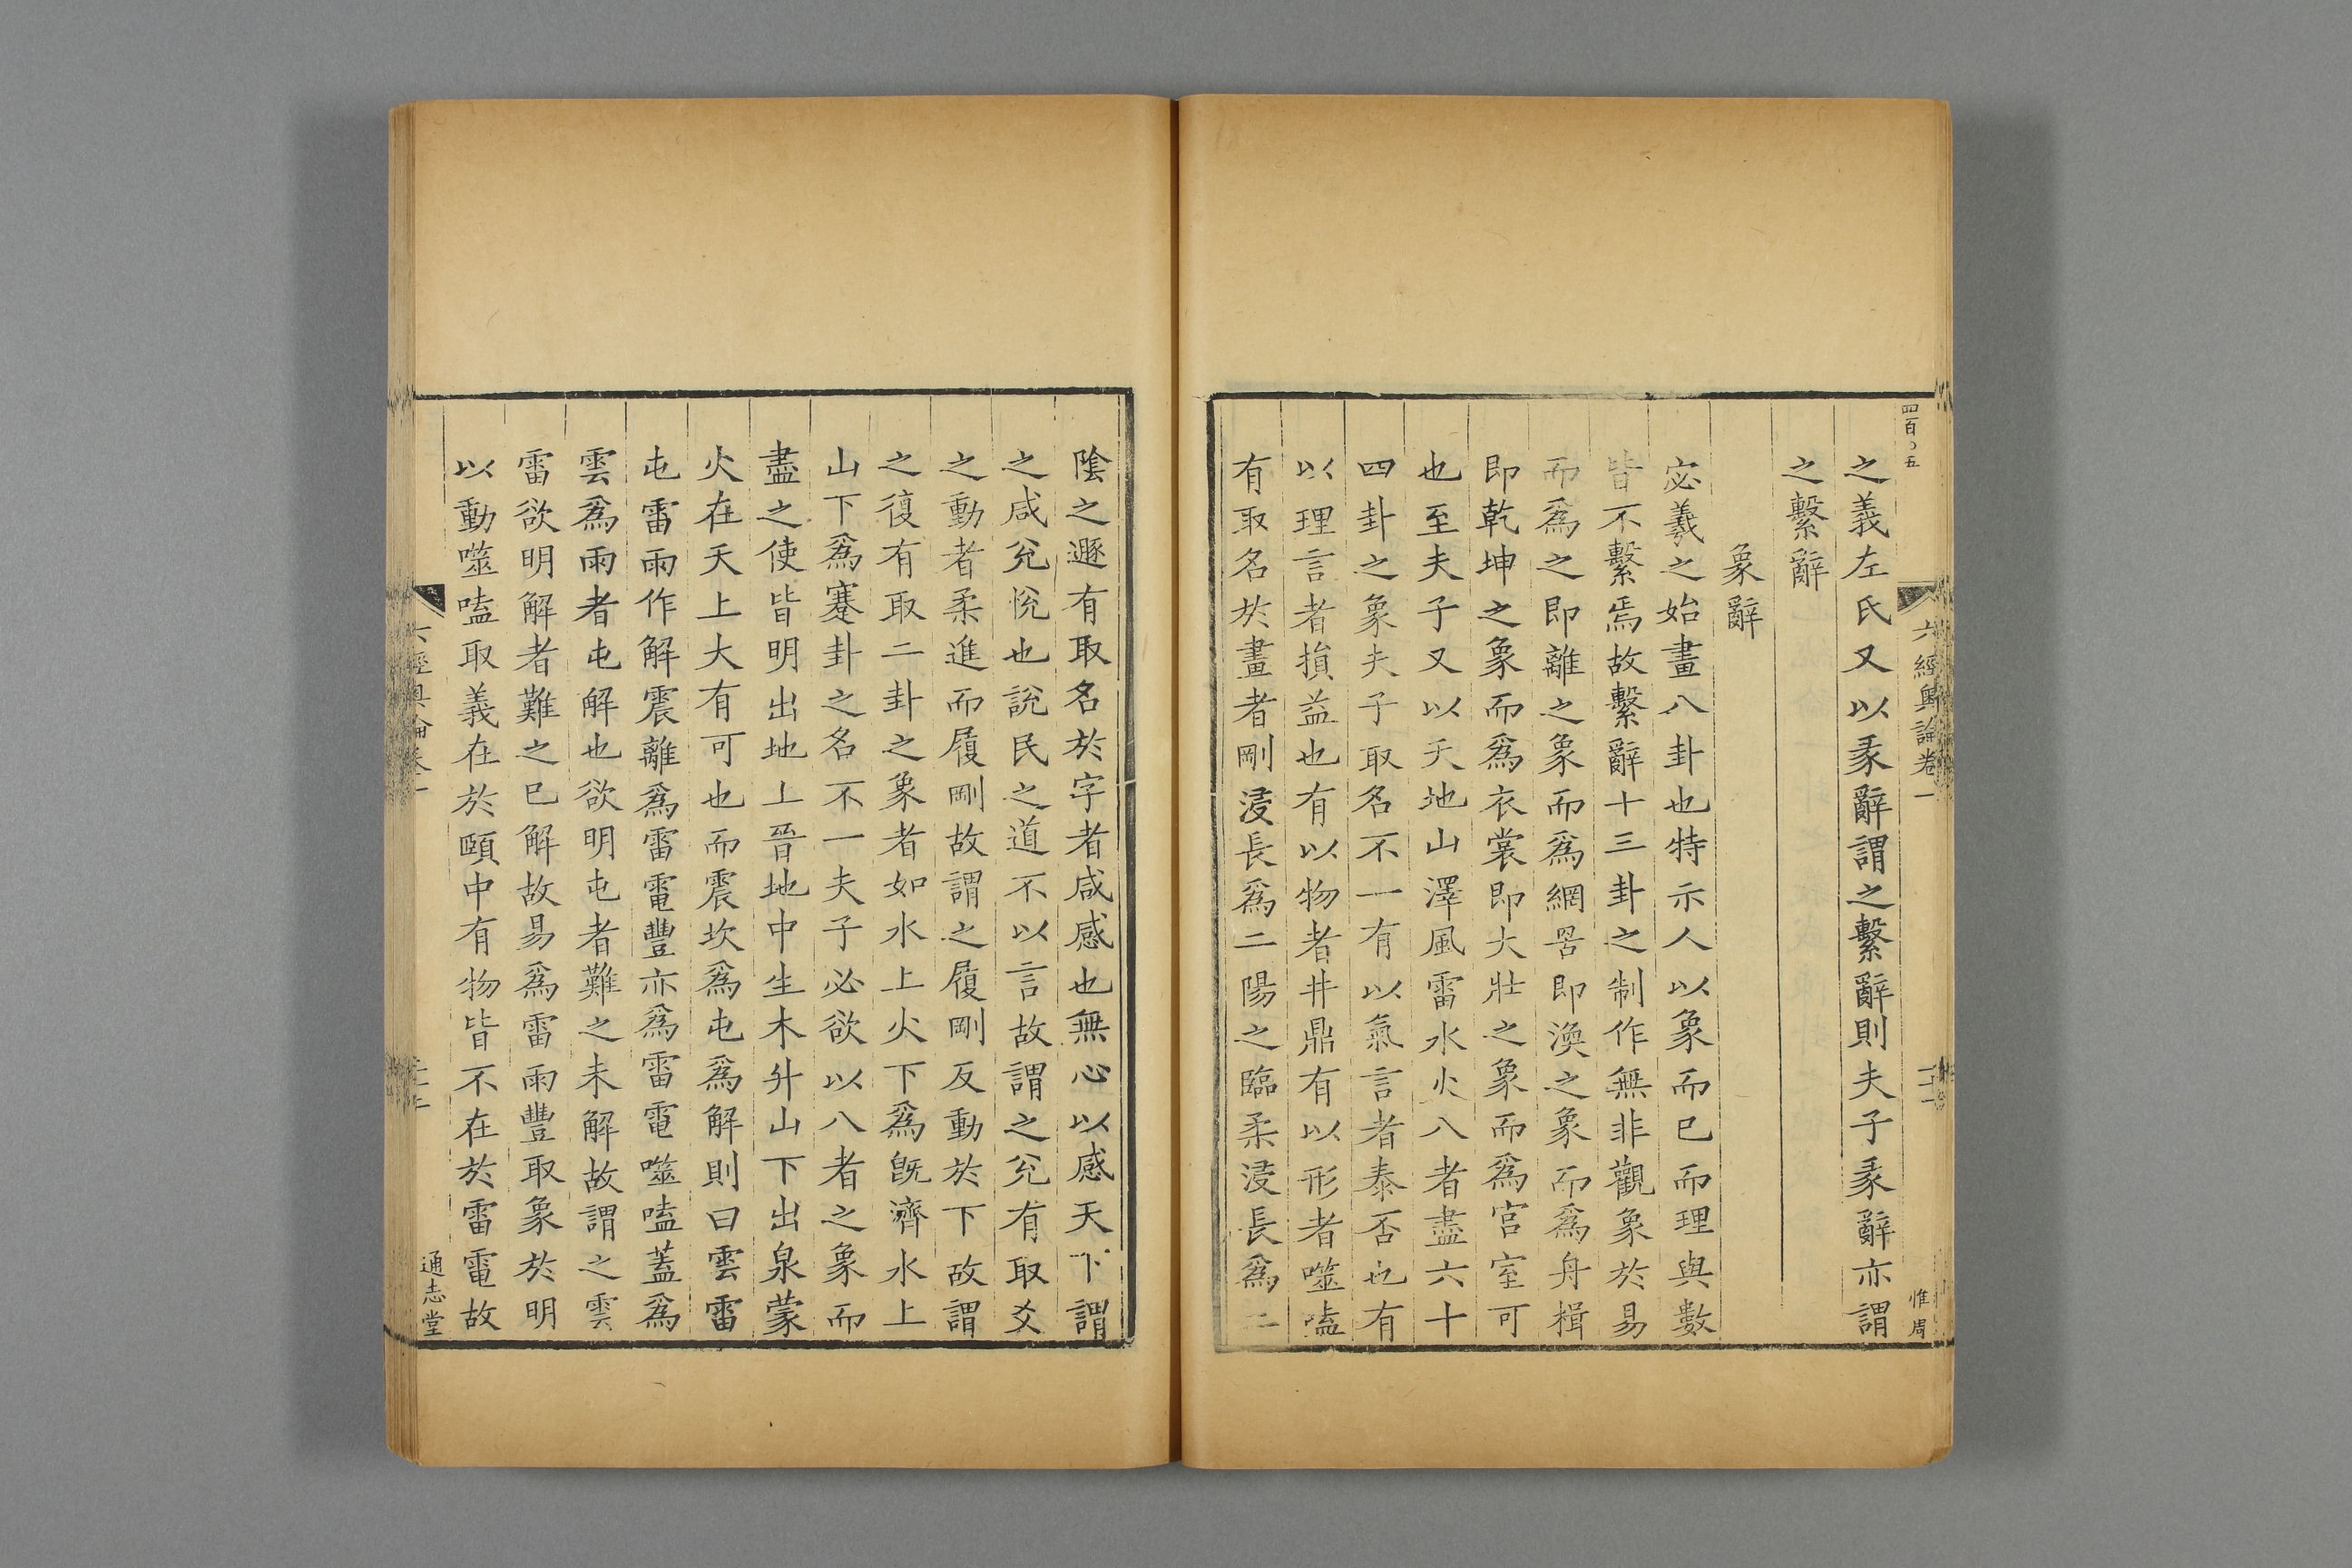 四百〇五
六經奧論卷一
惟周
之義左氏又以彖辭謂之繫辭則夫子彖辭亦謂
之繫辭
象辭
宓羲之始畫八卦也特示人以象而已而理與數
皆不繫焉故繫辭十三卦之制作無非觀象於易
而爲之即離之象而爲網罟即渙之象而爲舟楫
即乾坤之象而爲衣裳即大壯之象而爲宮室可
也至夫子又以天地山澤風雷水火八者盡六十
四卦之象夫子取名不一有以氣言者泰否也有
以理言者損益也有以物者井鼎有以形者噬嗑
有取名於畫者剛浸長爲二陽之臨柔浸長爲二
陰之遯有取名於字者咸感也無心以感天下謂
之咸兊悅也說民之道不以言故謂之兊有取爻
之動者柔進而履剛故謂之履剛反動於下故謂
之復有取二卦之象者如水上火下爲旣濟水上
山下爲蹇卦之名不一夫子必欲以八者之象而
盡之使皆明出地上晉地中生木升山下出泉蒙
火在天上大有可也而震坎爲屯爲解則曰雲雷
屯雷雨作解震離爲雷電豐亦爲雷電噬嗑蓋爲
雲爲雨者屯解也欲明屯者難之未解故謂之雲
雷欲明解者難之已解故易爲雷雨豐取象於明
以動噬嗑取義在於頤中有物皆不在於雷電故
六經奧論卷一
通志堂